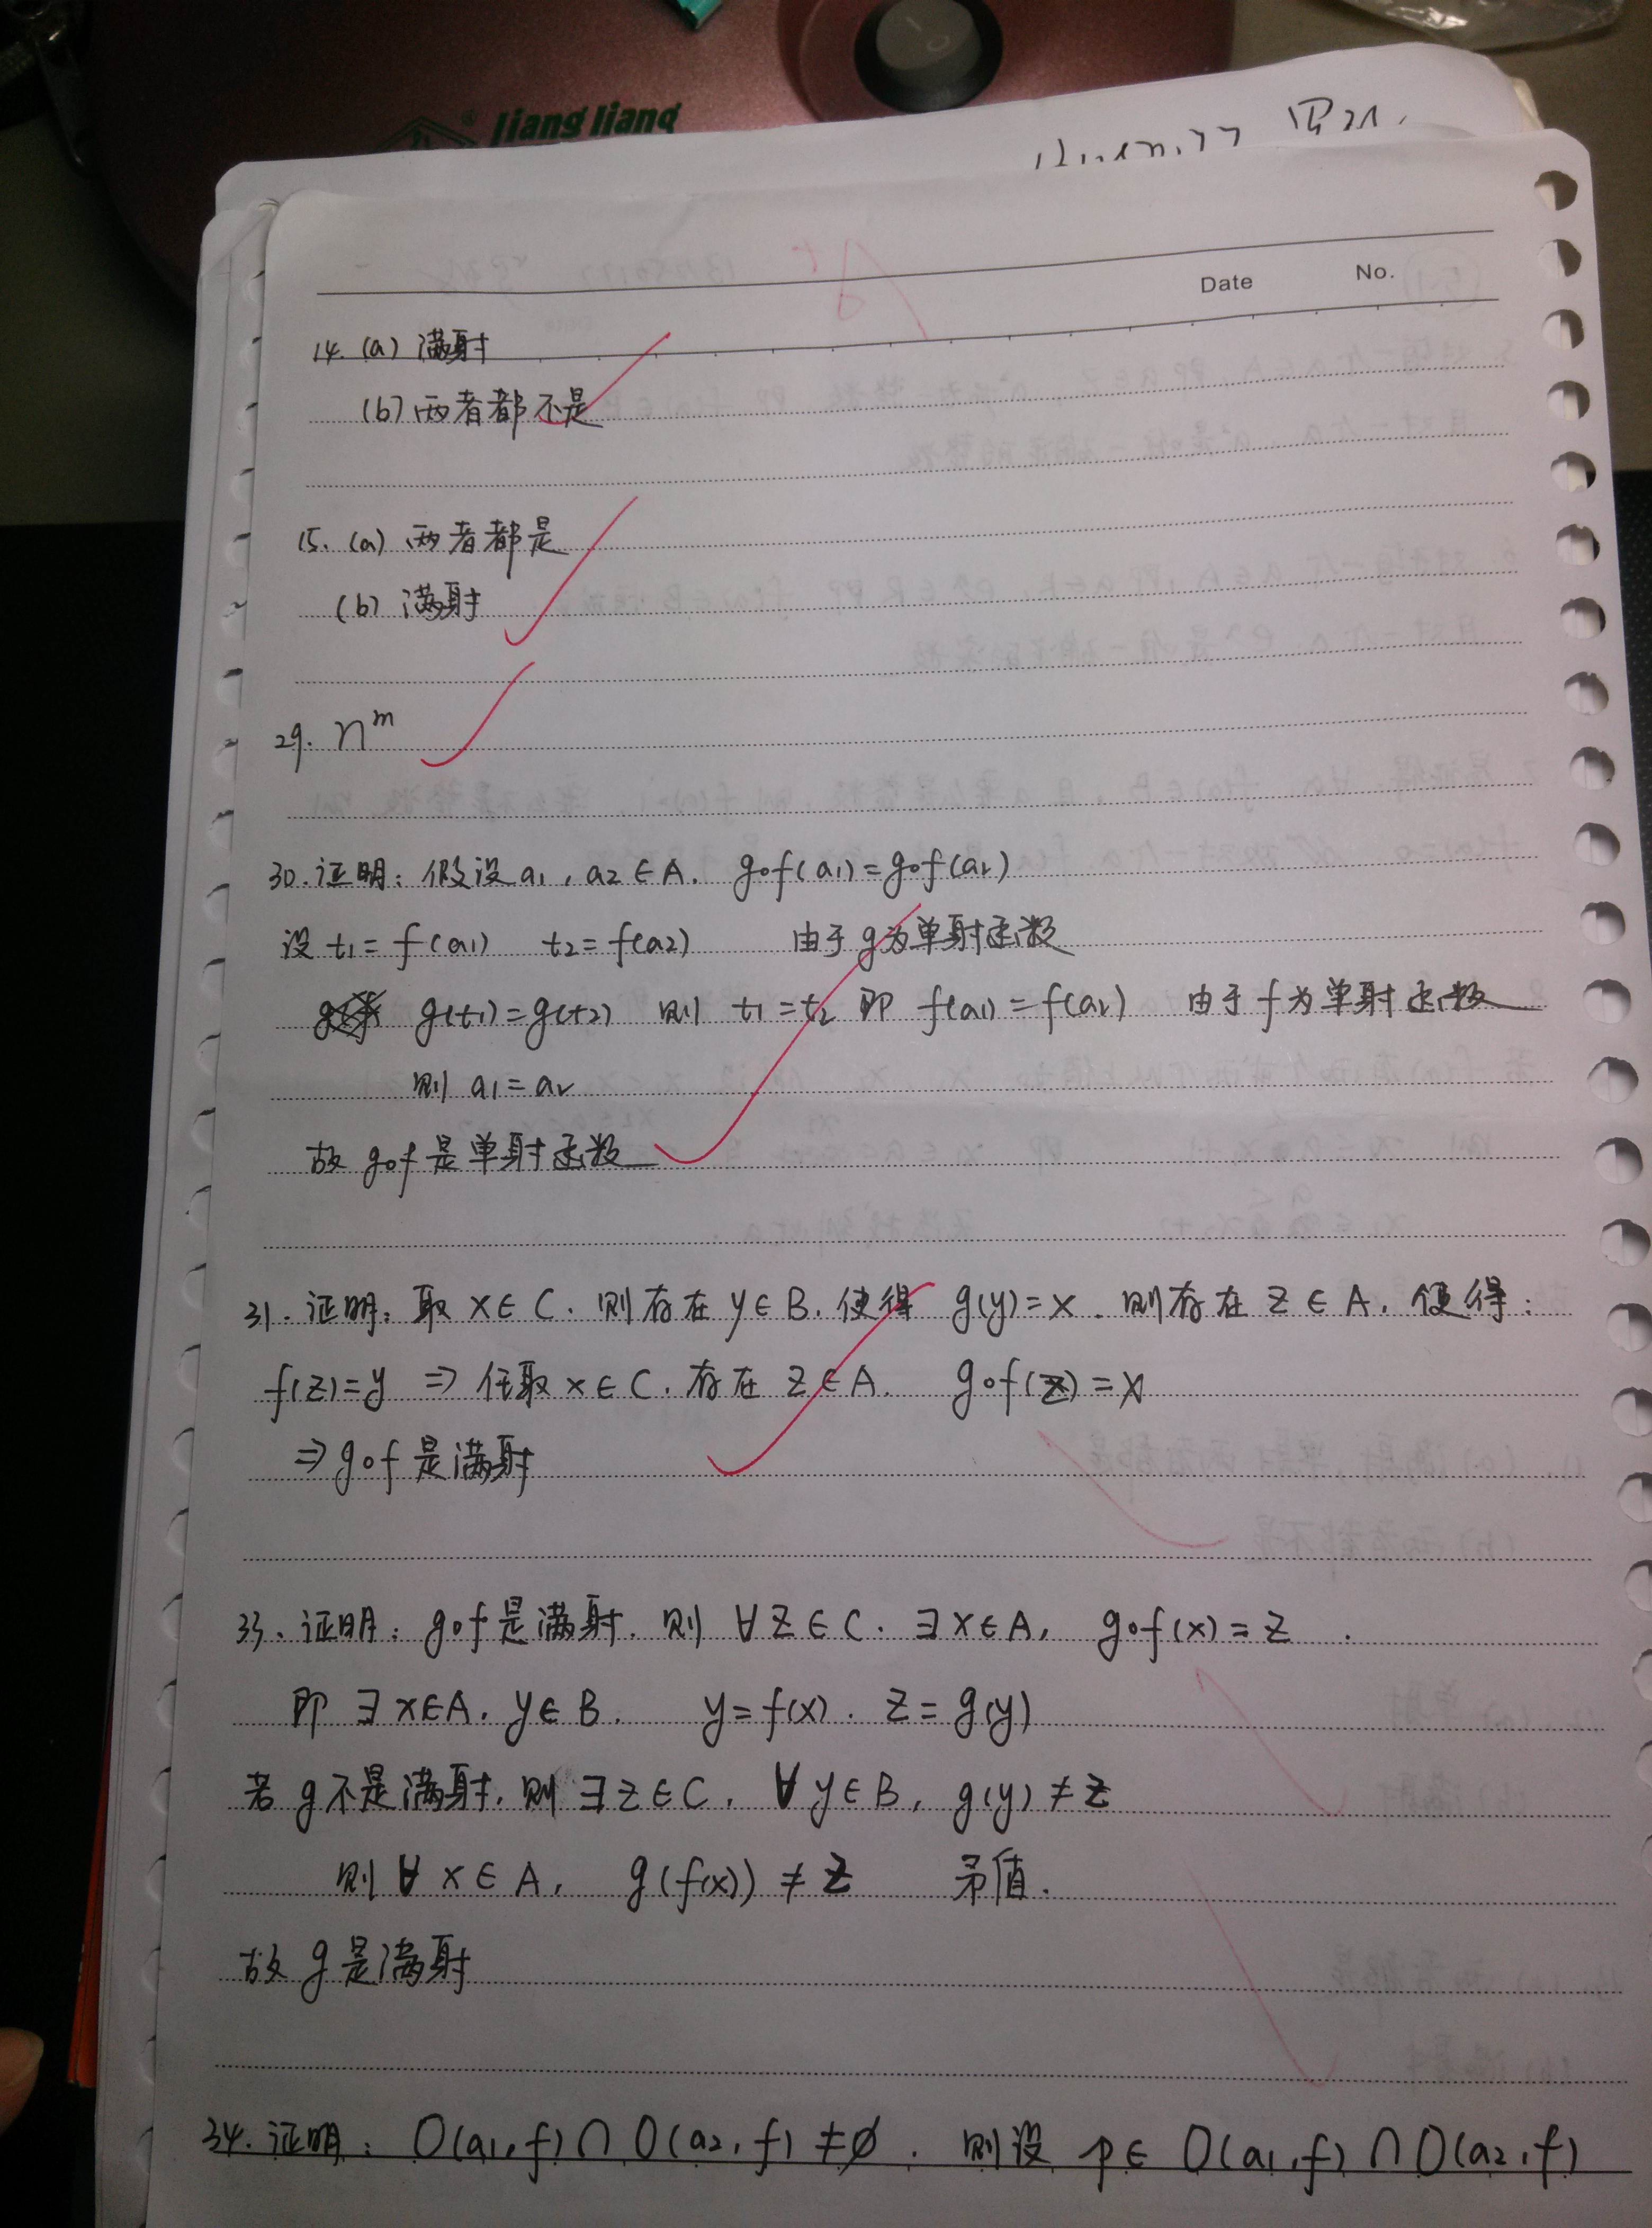 jiang liang
Date No.
14. (a) 满射
(b) 两者都不是
15. (a) 两者都是
(b) 满射
29. n^m
30. 证明: 假设 a1, a2 ∈ A. g∘f(a1) = g∘f(a2)
设 t1 = f(a1) t2 = f(a2) 由于 g 为单射函数
g(t1) = g(t2) 则 t1 = t2 即 f(a1) = f(a2) 由于 f 为单射函数
则 a1 = a2
故 g∘f 是单射函数
31. 证明: 取 x ∈ C. 则存在 y ∈ B. 使得 g(y) = x. 则存在 z ∈ A. 使得:
f(z) = y ⇒ 任取 x ∈ C. 存在 z ∈ A. g∘f(z) = x
⇒ g∘f 是满射
33. 证明: g∘f 是满射. 则 ∀z ∈ C. ∃x ∈ A, g∘f(x) = z.
即 ∃x ∈ A. y ∈ B. y = f(x). z = g(y)
若 g 不是满射, 则 ∃z ∈ C, ∀y ∈ B, g(y) ≠ z
则 ∀x ∈ A, g(f(x)) ≠ z 矛值.
故 g 是满射
34. 证明: O(a1, f) ∩ O(a2, f) ≠ ∅. 则设 p ∈ O(a1, f) ∩ O(a2, f)